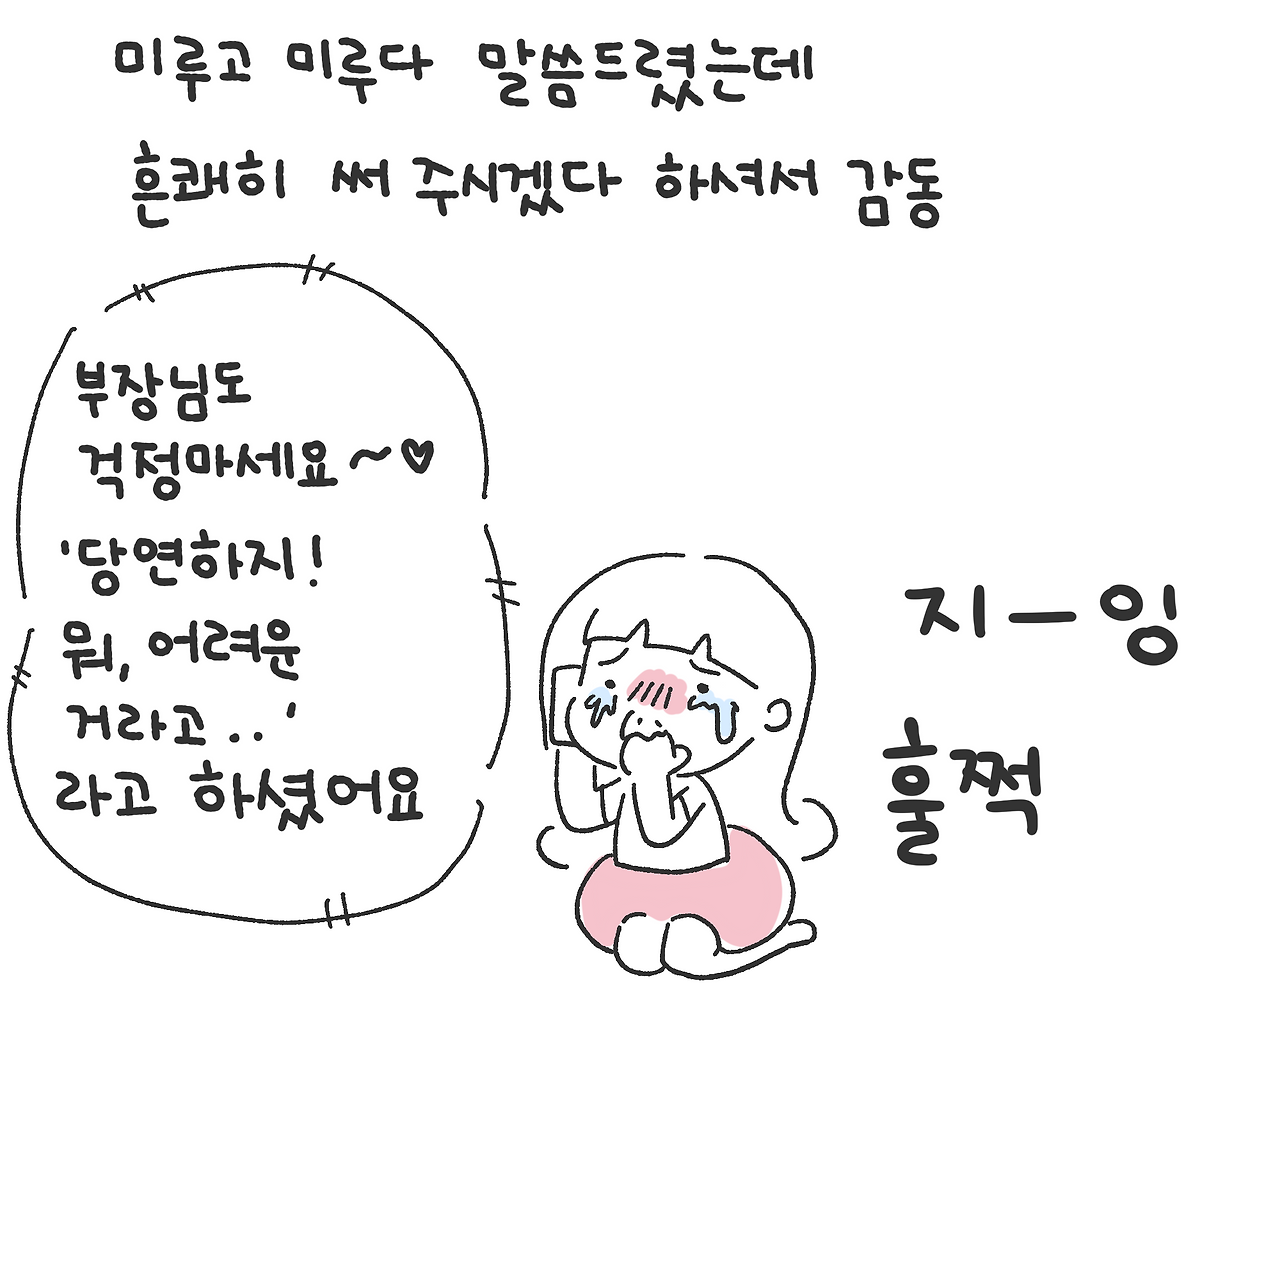 미루고 미루다 말씀드렸는데
흔쾌히 써 주시겠다 하셔서 감동
부장님도
걱정마세요~♡
'당연하지!
뭐, 어려운
거라고..'
라고 하셨어요
지ー잉
훌쩍